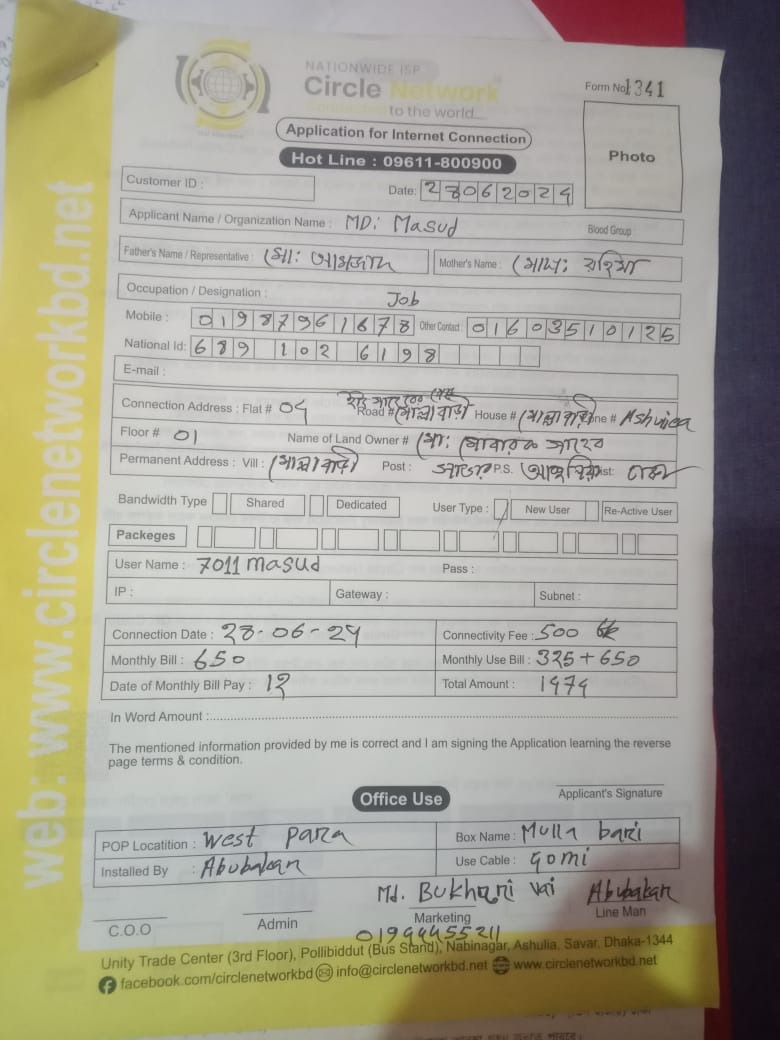 NATIONWIDE ISP
Circle Network
Connected to the world...
Form No: 1341
Application for Internet Connection
Photo
Hot Line : 09611-800900
Customer ID :
Date: 28062024
Applicant Name / Organization Name : MD: Masud
Blood Group
Father's Name / Representative : মো:
Mother's Name : মোছা:
Occupation / Designation : Job
Mobile : 01987961678 Other Contact : 01603510125
National Id: 689 102 6198
E-mail :
Connection Address : Flat # 04 Road # মোল্লাবাড়ী House # মোল্লাবাড়ী Zone # Ashulia
Floor # 01 Name of Land Owner # মো: মোবারক সাহেব
Permanent Address : Vill : মোল্লাবাড়ী Post : P.S. Dist: ঢাকা
Bandwidth Type Shared Dedicated User Type : New User Re-Active User
Packeges
User Name : 7011 masud Pass :
IP : Gateway : Subnet :
Connection Date : 28-06-24 Connectivity Fee : 500 tk
Monthly Bill : 650 Monthly Use Bill : 325 + 650
Date of Monthly Bill Pay : 12 Total Amount : 1474
In Word Amount :
The mentioned information provided by me is correct and I am signing the Application learning the reverse
page terms & condition.
Applicant's Signature
Office Use
POP Locatition : West para Box Name : Mulla bari
Installed By : Abubakar Use Cable : 90mi
Md. Bukhari vai Abubakar
C.O.O Admin Marketing Line Man
01944455211
Unity Trade Center (3rd Floor), Pollibiddut (Bus Stand), Nabinagar, Ashulia, Savar, Dhaka-1344
facebook.com/circlenetworkbd info@circlenetworkbd.net www.circlenetworkbd.net
web: www.circlenetworkbd.net